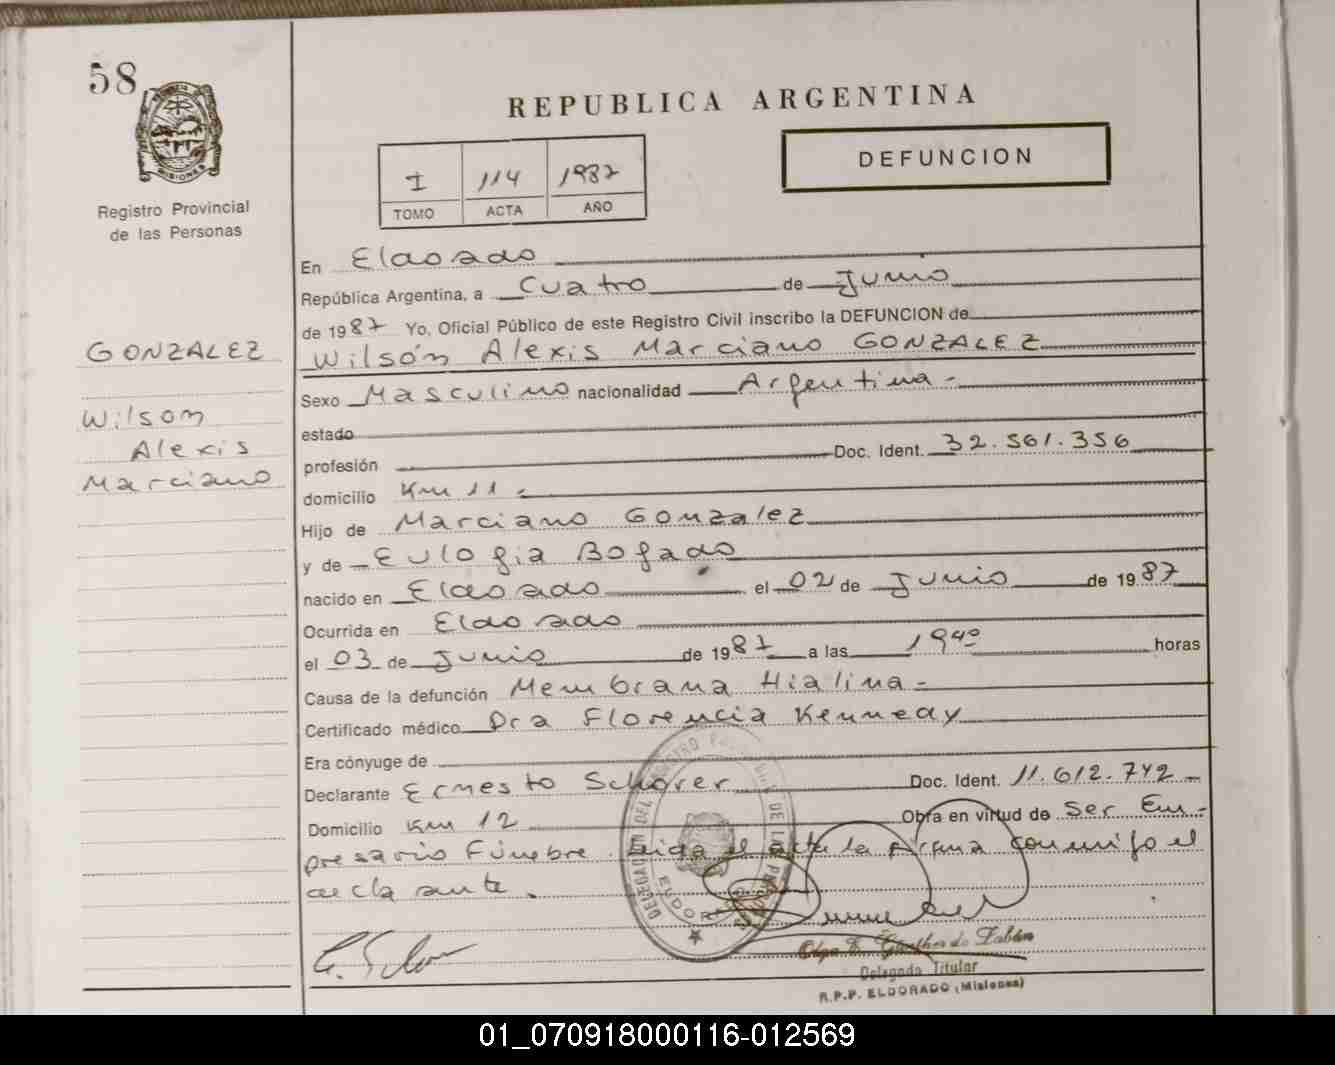 58
MISIONES
Registro Provincial
de las Personas
REPUBLICA ARGENTINA
I 114 1987
TOMO ACTA AÑO
DEFUNCION
En Eldorado
República Argentina, a Cuatro de Junio
de 1987 Yo, Oficial Público de este Registro Civil inscribo la DEFUNCION de
GONZALEZ
Wilsón Alexis Marciano GONZALEZ
Sexo Masculino nacionalidad Argentina-
Wilson
Alexis
Marciano
estado
profesión Doc. Ident. 32.561.356
domicilio Km 11-
Hijo de Marciano Gonzalez
y de Eulogia Bogado
nacido en Eldorado el 02 de Junio de 1987
Ocurrida en Eldorado
el 03 de Junio de 1987 a las 19⁴⁰ horas
Causa de la defunción Membrana Hialina-
Certificado médico Dra Florencia Kennedy
Era cónyuge de
Declarante Ernesto Schorer Doc. Ident. 11.612.742-
Domicilio Km 12 Obra en virtud de Ser Em-
presario Fúnebre. Leida el acta la firma conmigo el
declarante.
DELEGACION DEL REGISTRO DE LAS
ELDORADO
Olga E. Günther de
Delegada Titular
R.P.P. ELDORADO (Misiones)
01_070918000116-012569